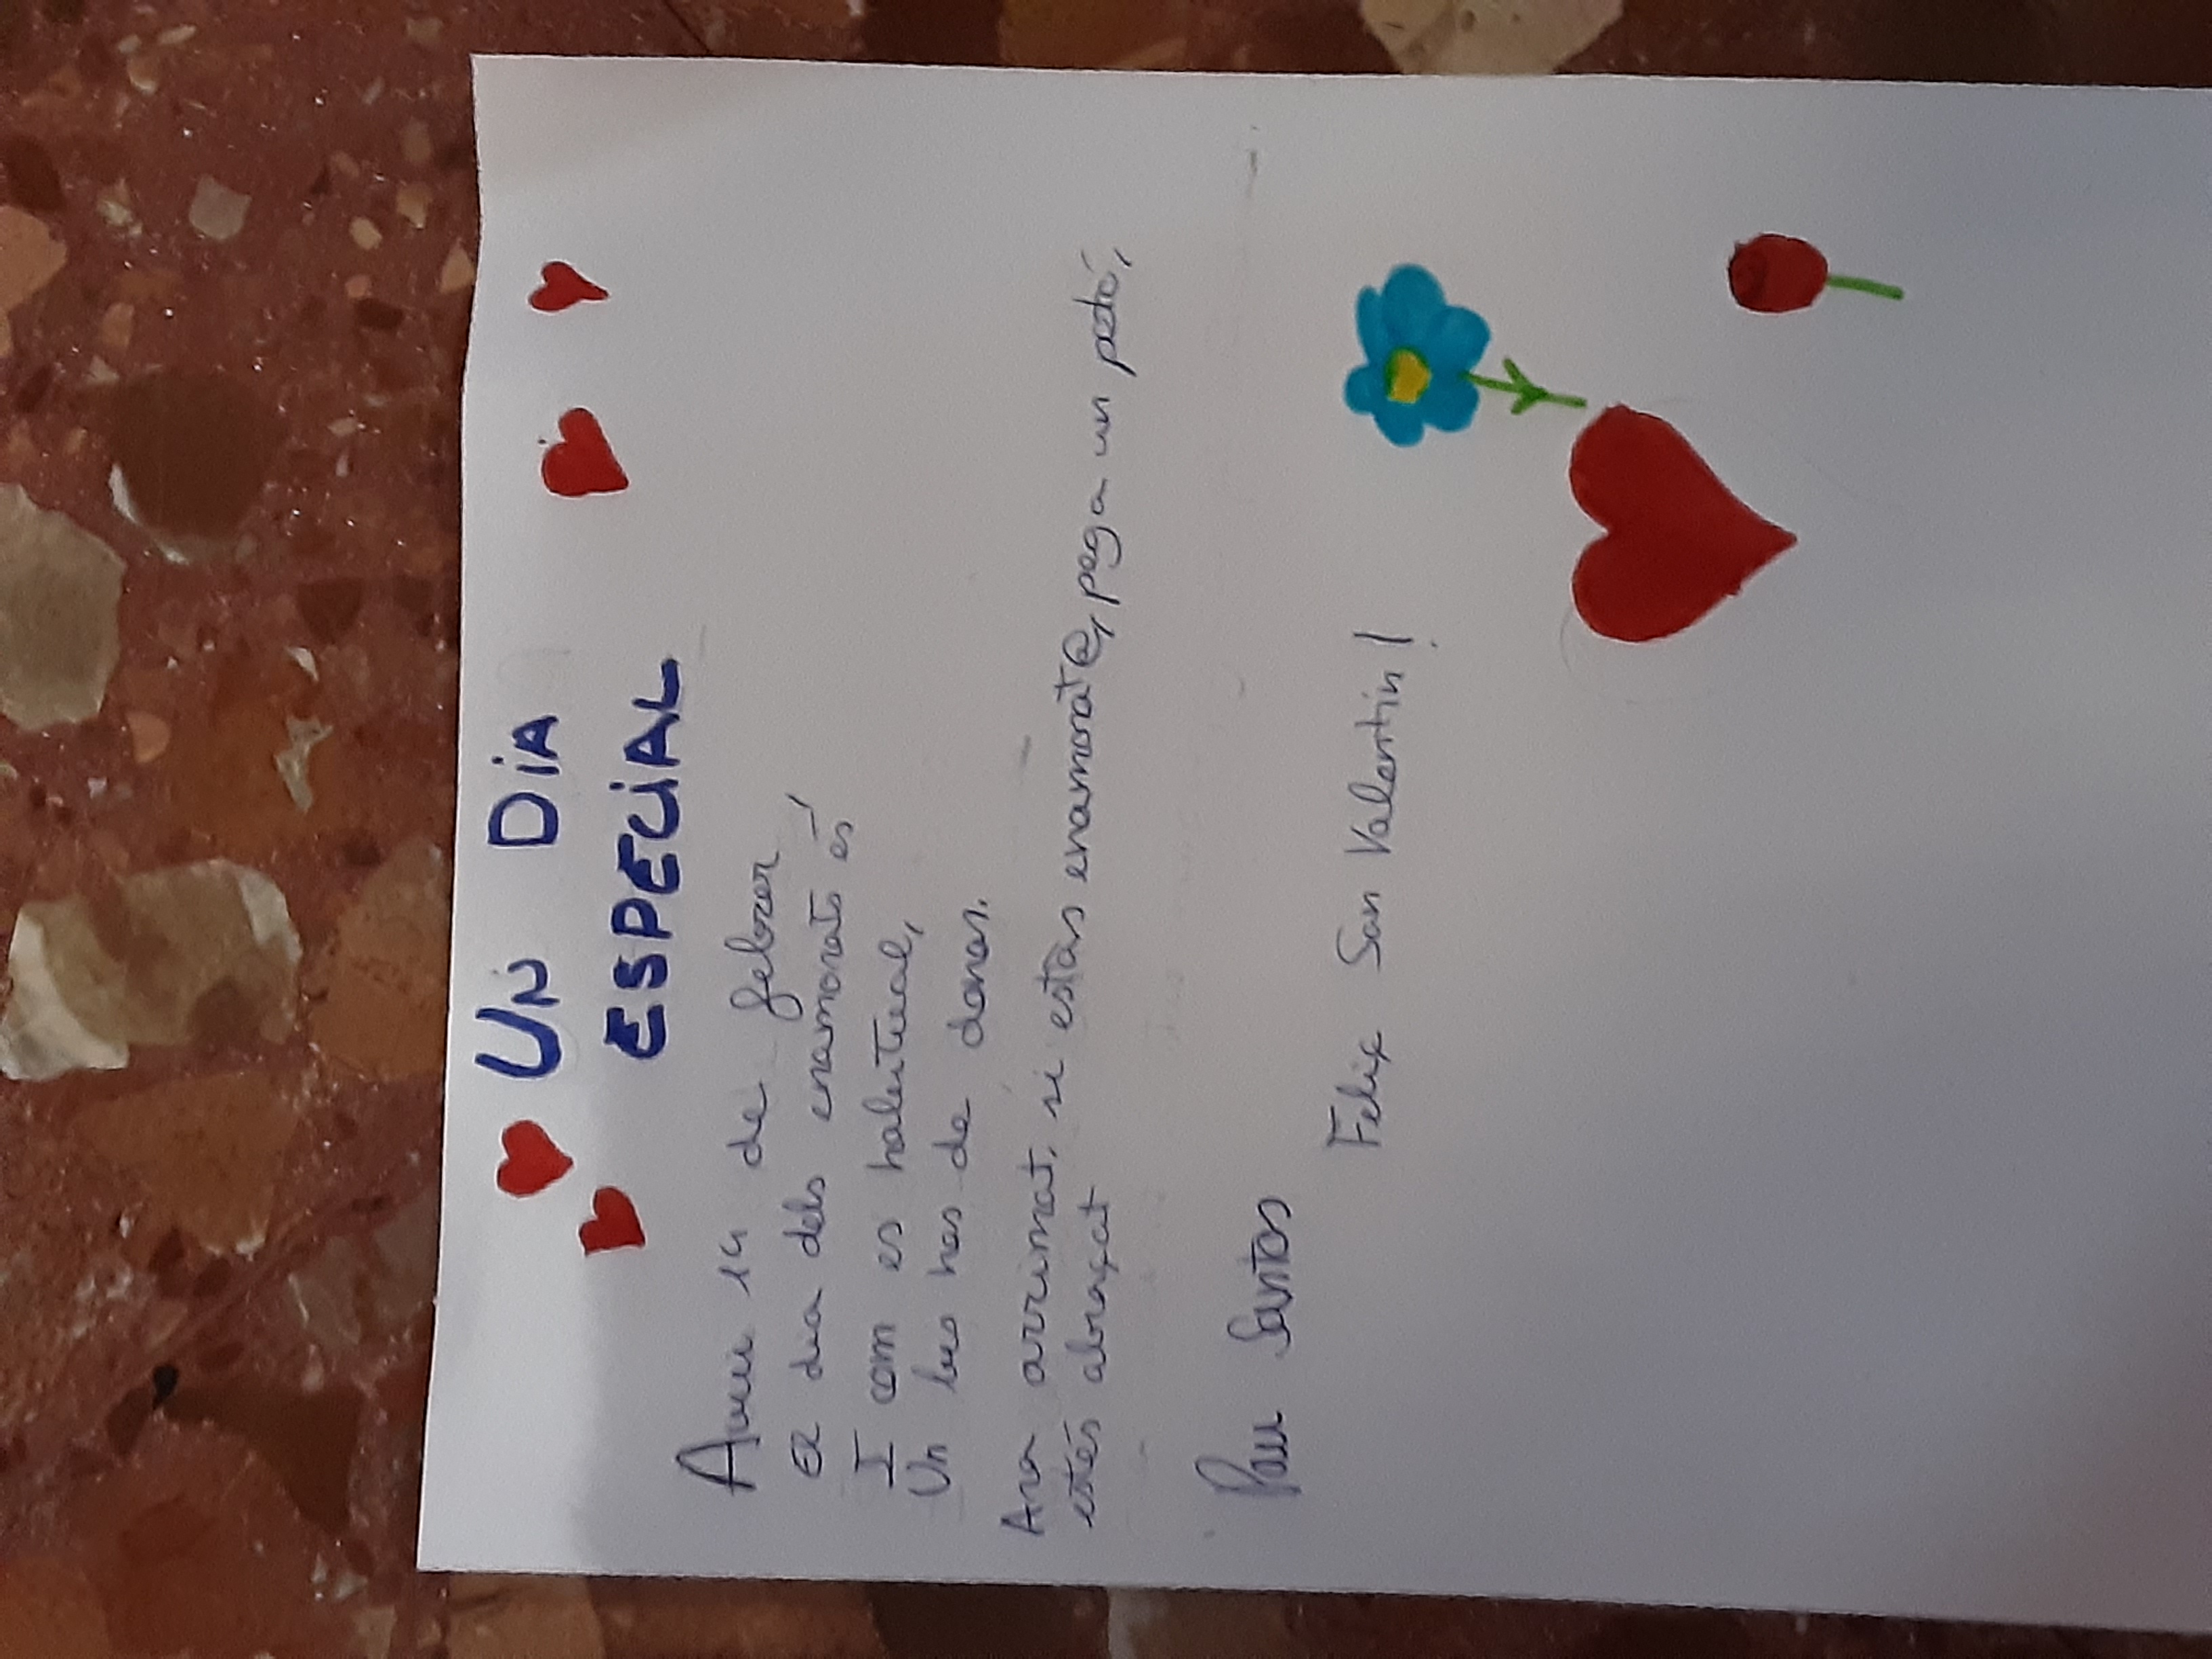 UN DIA
ESPECIAL
Avui 14 de febrer,
El dia dels enamorats és
I com es habitual,
Un bes has de donar.
Ara arrimat, si estàs enamorat@, pega un petó,
estés abraçat
Pau Santos
Feliç San Valentin!